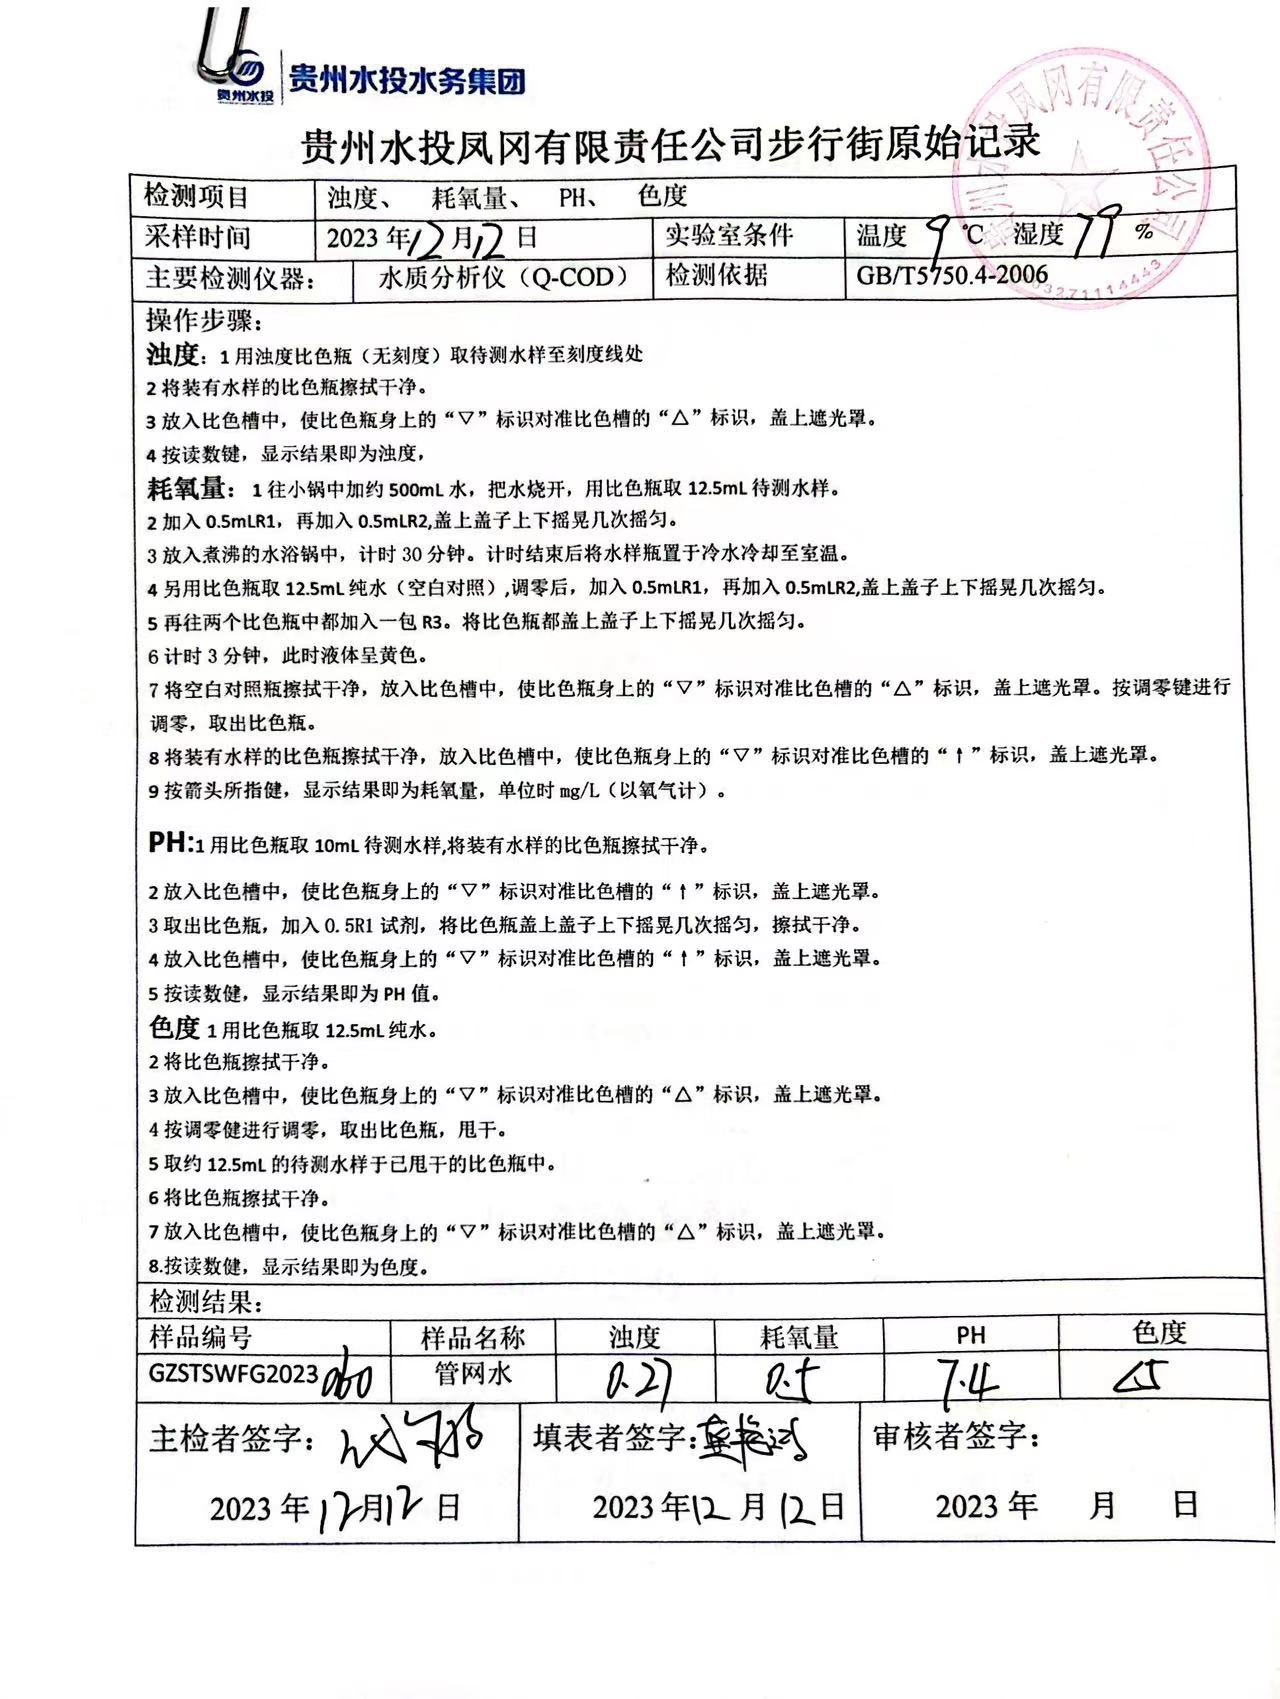 贵州水投
贵州水投水务集团
贵州水投凤冈有限责任公司步行街原始记录
检测项目 浊度、 耗氧量、 PH、 色度
采样时间 2023年12月12日 实验室条件 温度 9 ℃ 湿度 79 %
主要检测仪器： 水质分析仪（Q-COD） 检测依据 GB/T5750.4-2006
03271114443
操作步骤：
浊度：1用浊度比色瓶（无刻度）取待测水样至刻度线处
2将装有水样的比色瓶擦拭干净。
3放入比色槽中，使比色瓶身上的“▽”标识对准比色槽的“△”标识，盖上遮光罩。
4按读数键，显示结果即为浊度，
耗氧量：1往小锅中加约500mL水，把水烧开，用比色瓶取12.5mL待测水样。
2加入0.5mLR1，再加入0.5mLR2,盖上盖子上下摇晃几次摇匀。
3放入煮沸的水浴锅中，计时30分钟。计时结束后将水样瓶置于冷水冷却至室温。
4另用比色瓶取12.5mL纯水（空白对照）,调零后，加入0.5mLR1，再加入0.5mLR2,盖上盖子上下摇晃几次摇匀。
5再往两个比色瓶中都加入一包R3。将比色瓶都盖上盖子上下摇晃几次摇匀。
6计时3分钟，此时液体呈黄色。
7将空白对照瓶擦拭干净，放入比色槽中，使比色瓶身上的“▽”标识对准比色槽的“△”标识，盖上遮光罩。按调零键进行
调零，取出比色瓶。
8将装有水样的比色瓶擦拭干净，放入比色槽中，使比色瓶身上的“▽”标识对准比色槽的“↑”标识，盖上遮光罩。
9按箭头所指健，显示结果即为耗氧量，单位时mg/L（以氧气计）。
PH:1用比色瓶取10mL待测水样,将装有水样的比色瓶擦拭干净。
2放入比色槽中，使比色瓶身上的“▽”标识对准比色槽的“↑”标识，盖上遮光罩。
3取出比色瓶，加入0.5R1试剂，将比色瓶盖上盖子上下摇晃几次摇匀，擦拭干净。
4放入比色槽中，使比色瓶身上的“▽”标识对准比色槽的“↑”标识，盖上遮光罩。
5按读数健，显示结果即为PH值。
色度 1用比色瓶取12.5mL纯水。
2将比色瓶擦拭干净。
3放入比色槽中，使比色瓶身上的“▽”标识对准比色槽的“△”标识，盖上遮光罩。
4按调零健进行调零，取出比色瓶，甩干。
5取约12.5mL的待测水样于已甩干的比色瓶中。
6将比色瓶擦拭干净。
7放入比色槽中，使比色瓶身上的“▽”标识对准比色槽的“△”标识，盖上遮光罩。
8.按读数健，显示结果即为色度。
检测结果：
样品编号 样品名称 浊度 耗氧量 PH 色度
GZSTSWFG2023060 管网水 0.27 0.5 7.4 <5
主检者签字： 填表者签字： 审核者签字：
2023年12月12日 2023年12月12日 2023年 月 日